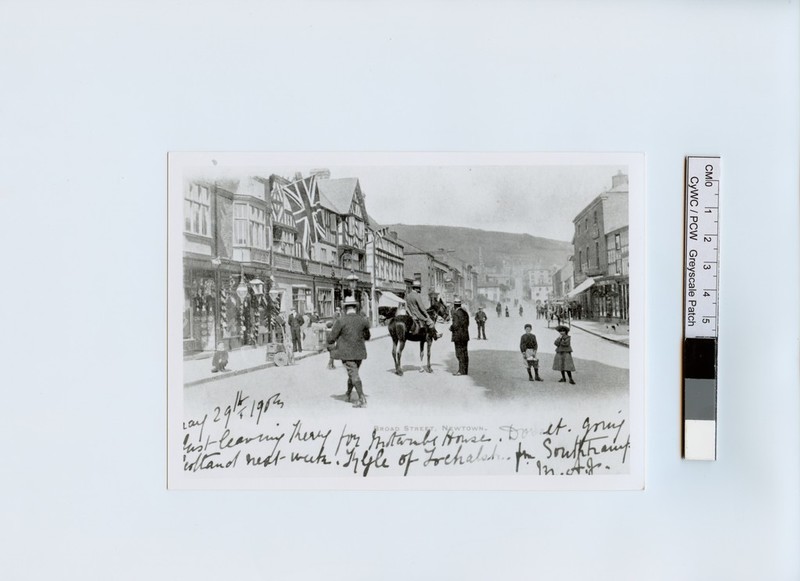 BROAD STREET, NEWTOWN.
ay 29th 1904
ust leaving there for House. going
cotland next week. Kyle of Lochalsh. for
CM 0 1 2 3 4 5
CyWC / PCW Greyscale Patch